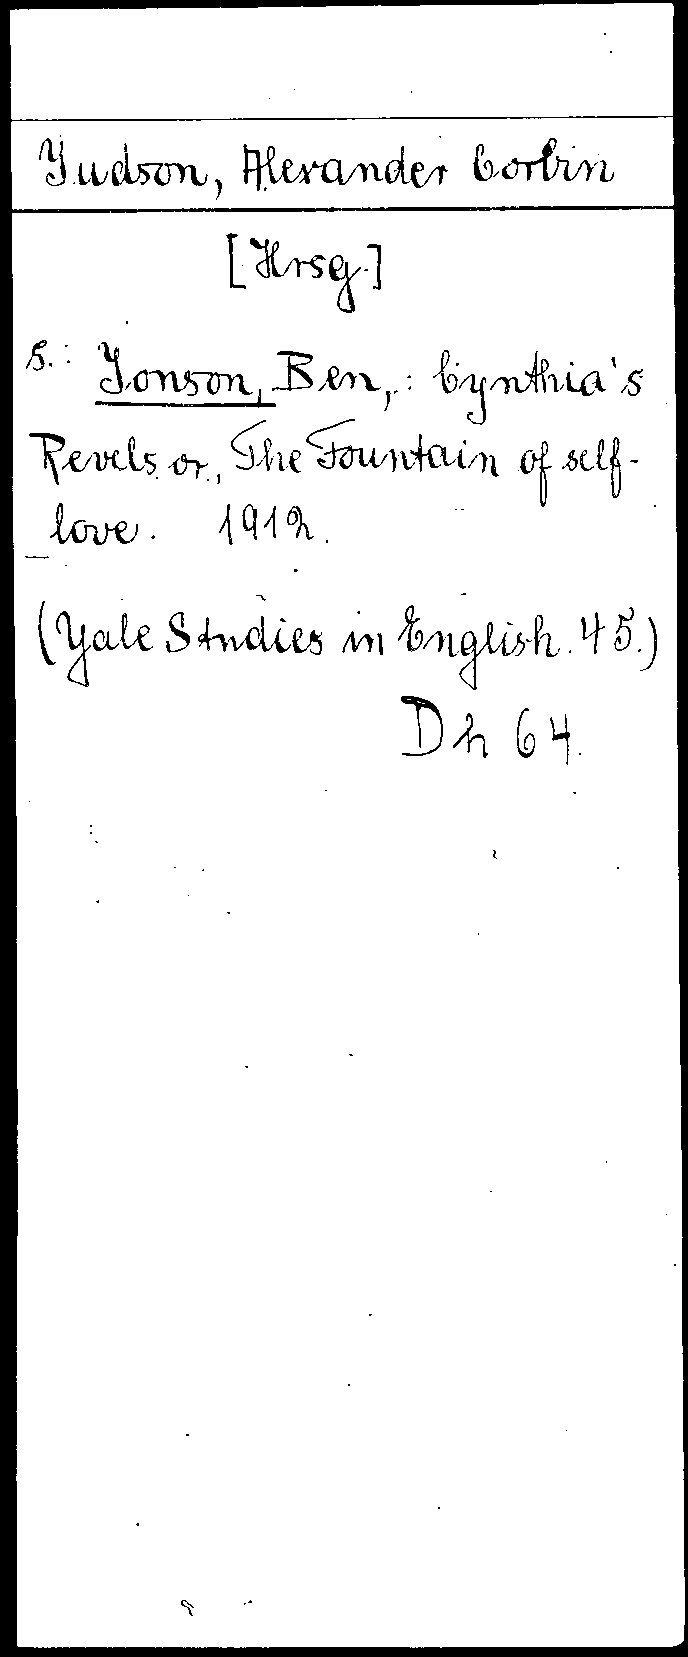 Judson, Alexander Corbin
[Hrsg.]
s.: Jonson, Ben,: Cynthia's
Revels or, The Fountain of self-
love. 1912.
(Yale Studies in English. 45.)
Dh 64.